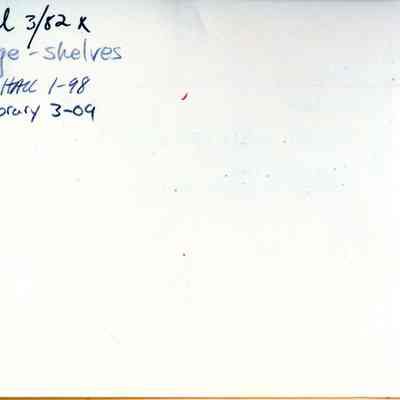 l 3/82 R
ge - shelves
HALL 1-98
brary 3-09